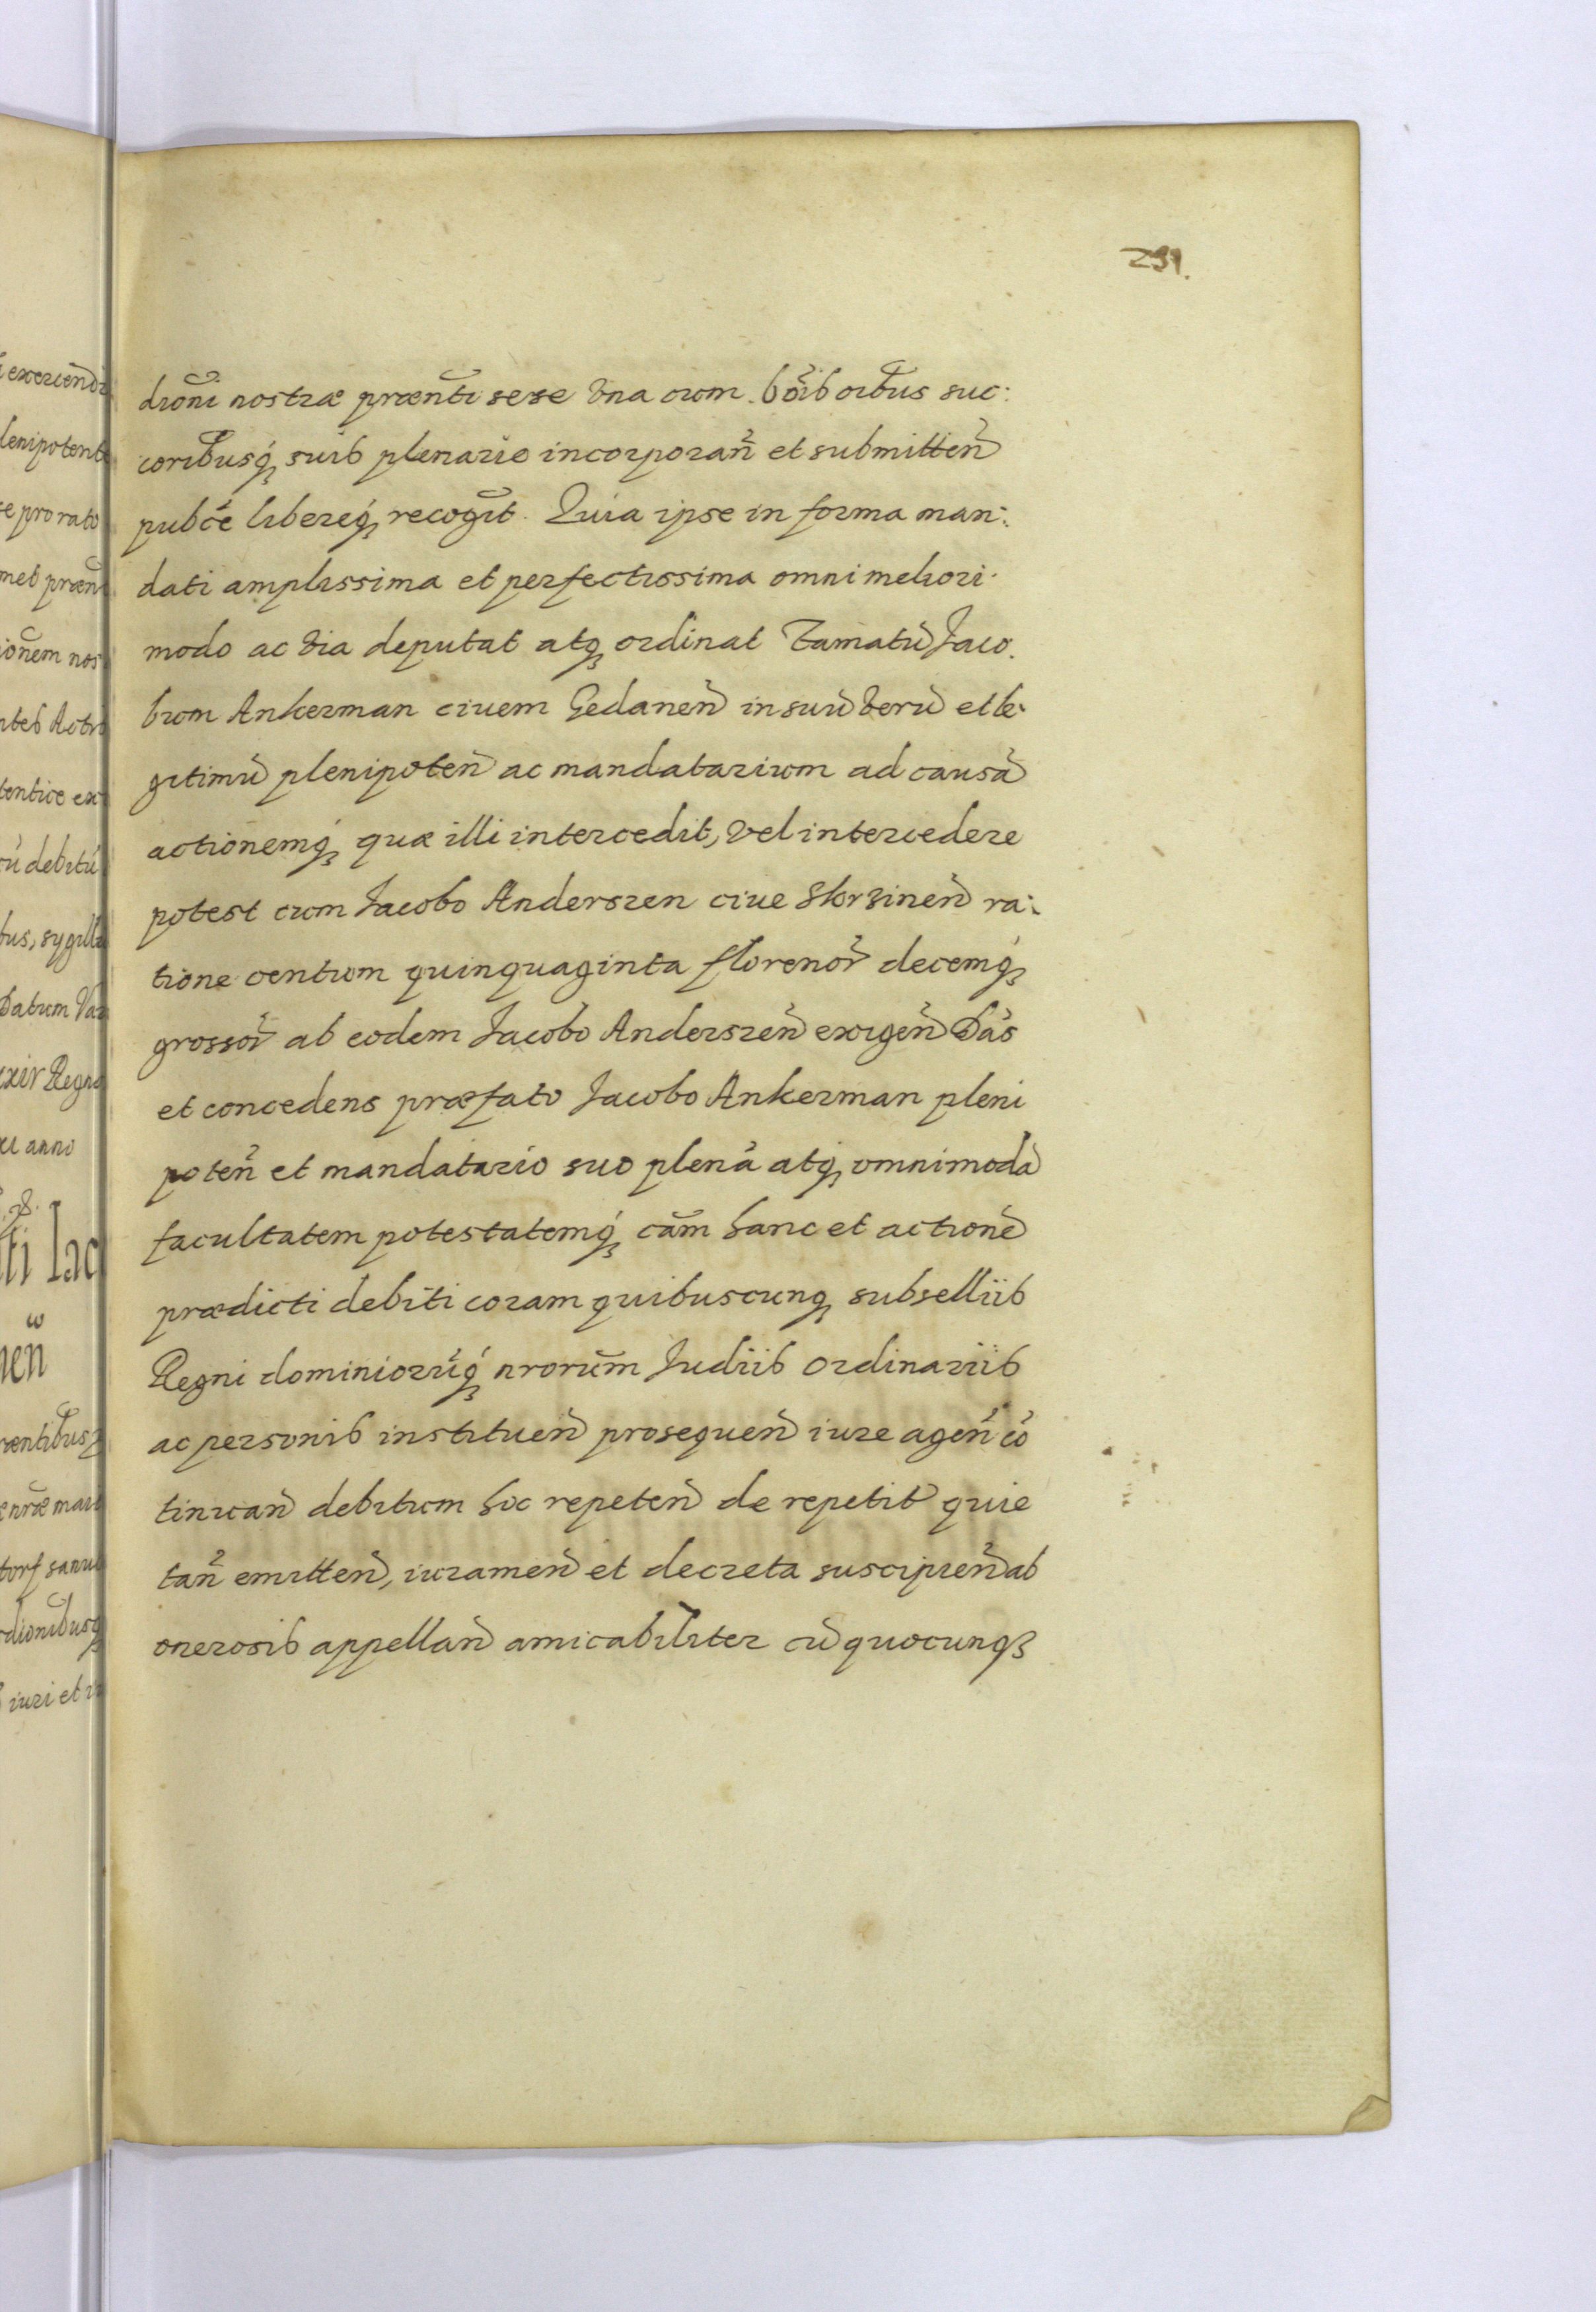 291.
dioni nostræ prænti sese vna cum bonis oibus suc:
coribusq suis plenarie incorporan et submitten
pubce libereq recogit. Quia ipse in forma man:
dati amplissima et perfectissima omni meliori
modo ac via deputat atq ordinat famatu Jaco.
bum Ankerman ciuem Gedanen in suu veru et le:
gitimu plenipoten ac mandatarium ad causa
actionemq quæ illi intercedit, vel intercedere
potest cum Jacobo Anderszen ciue Skrzinen ra:
tione centum quinquaginta florenor decemq
grossor ab eodem Jacobo Anderszen exigen Das
et concedens præfato Jacobo Ankerman pleni
poten et mandatario suo plena atq omnimoda
facultatem potestatemq cam hanc et actione
prædicti debiti coram quibuscunq subselliis
Regni dominiorüq nrorum Judiis ordinariis
ac personis instituen prosequen iure agen co
tinuan debitum hoc repeten de repetit quie
tan emitten, iuramen et decreta suscipien ab
onerosis appellan amicabiliter cu quocunq
exercendi
lenipotent
se pro rato
met præn
ionem nos
ntes Actis
tentice ex
debitu
bus, sygill
Datum Va
xxiv Regno
anno
ti Iac
nen
rentibus
nræ mai
torf sanu
dionibusq
iuri et